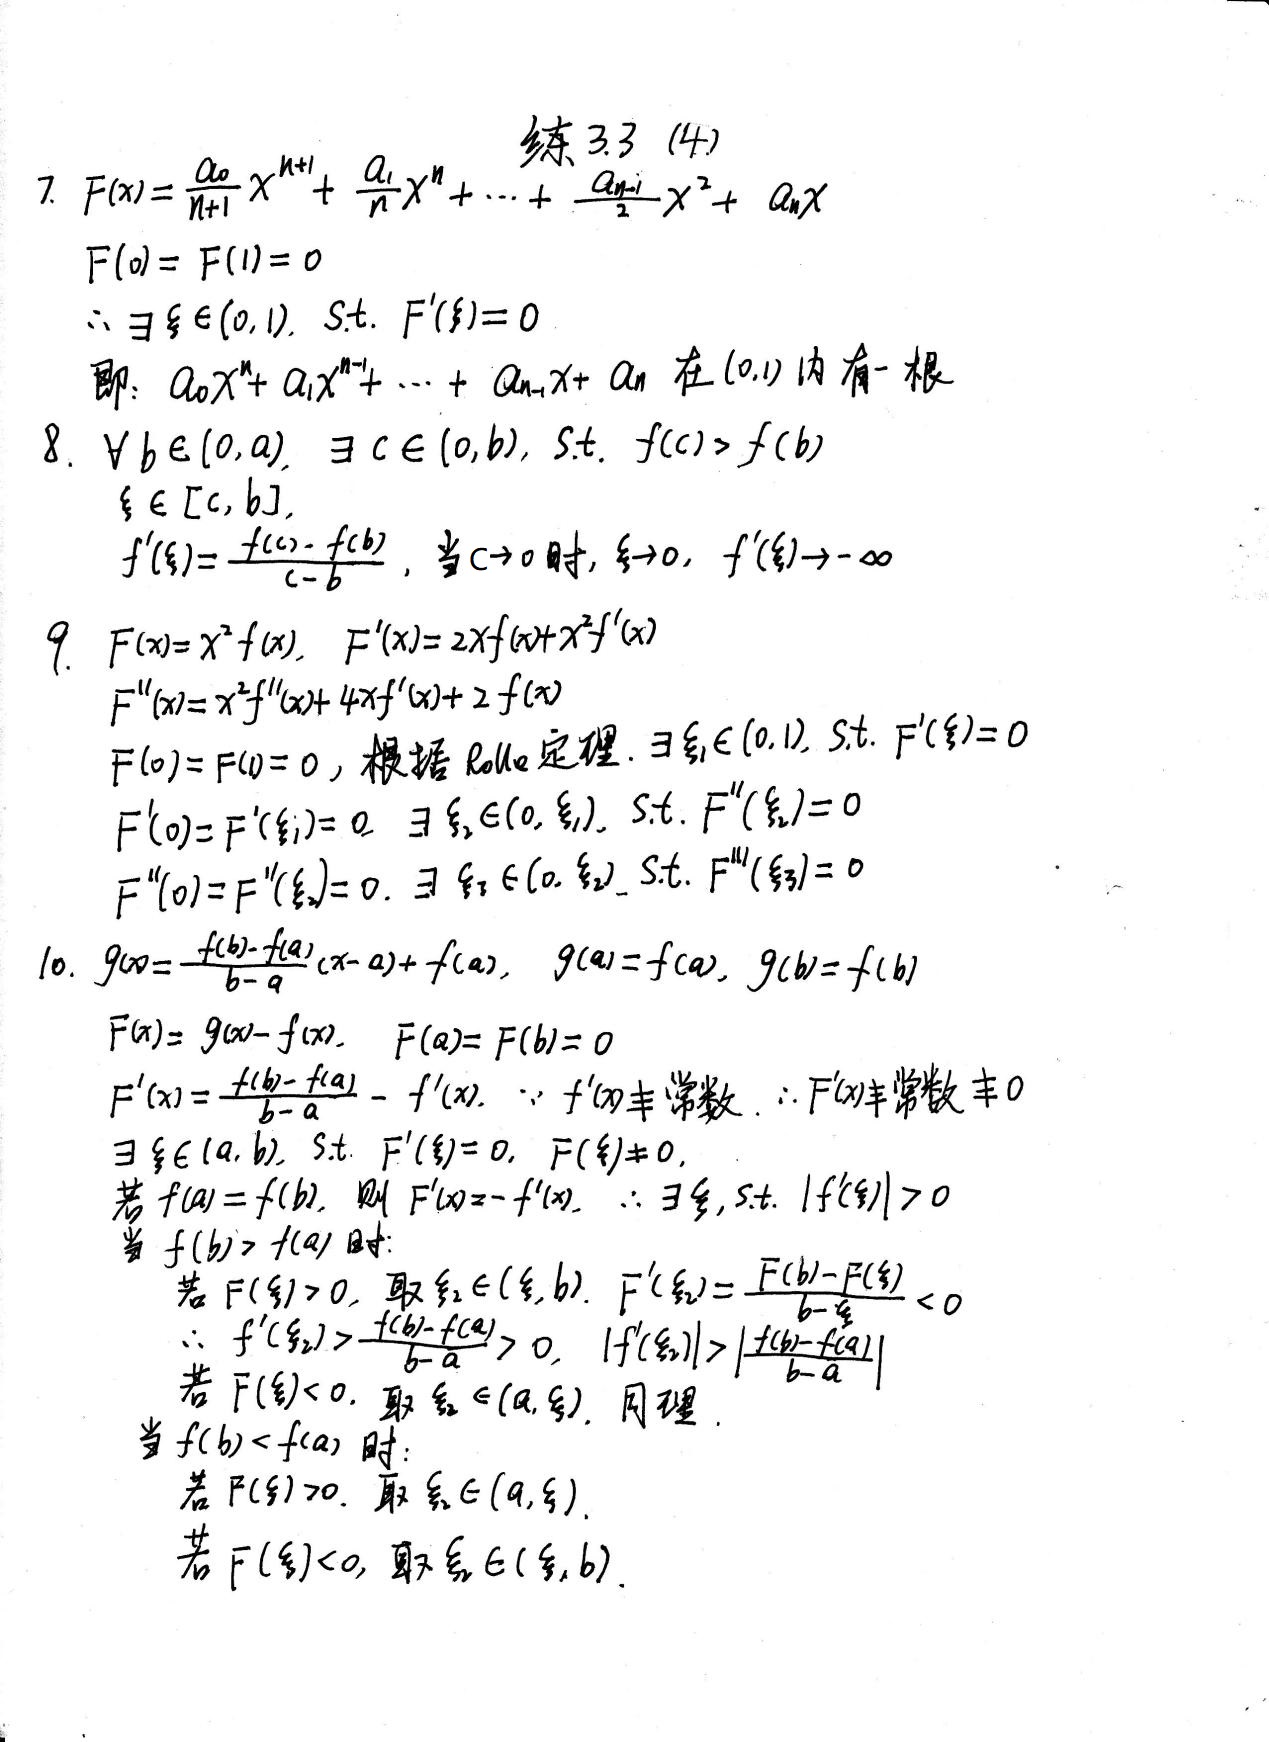 练3.3 (4)
7. F(x) = a₀/(n+1) xⁿ⁺¹ + a₁/n xⁿ + ⋯ + aₙ₋₁/2 x² + aₙx
F(0) = F(1) = 0
∴ ∃ ξ ∈ (0,1), s.t. F'(ξ) = 0
即: a₀xⁿ + a₁xⁿ⁻¹ + ⋯ + aₙ₋₁x + aₙ 在 (0,1) 内有一根
8. ∀ b ∈ (0,a), ∃ c ∈ (0,b), s.t. f(c) > f(b)
ξ ∈ [c, b],
f'(ξ) = (f(c) - f(b))/(c - b), 当 c→0 时, ξ→0, f'(ξ)→ -∞
9. F(x) = x² f(x), F'(x) = 2xf(x) + x²f'(x)
F''(x) = x²f''(x) + 4xf'(x) + 2f(x)
F(0) = F(1) = 0, 根据 Rolle 定理. ∃ ξ₁ ∈ (0,1), s.t. F'(ξ) = 0
F'(0) = F'(ξ₁) = 0 ∃ ξ₂ ∈ (0, ξ₁), s.t. F''(ξ₂) = 0
F''(0) = F''(ξ₂) = 0. ∃ ξ₃ ∈ (0, ξ₂), s.t. F'''(ξ₃) = 0
10. g(x) = (f(b) - f(a))/(b - a) (x - a) + f(a), g(a) = f(a), g(b) = f(b)
F(x) = g(x) - f(x), F(a) = F(b) = 0
F'(x) = (f(b) - f(a))/(b - a) - f'(x). ∵ f'(x) ≢ 常数. ∴ F'(x) ≢ 常数 ≢ 0
∃ ξ ∈ (a, b), s.t. F'(ξ) = 0, F(ξ) ≠ 0,
若 f(a) = f(b), 则 F'(x) = -f'(x), ∴ ∃ ξ, s.t. |f'(ξ)| > 0
当 f(b) > f(a) 时:
若 F(ξ) > 0, 取 ξ₂ ∈ (ξ, b). F'(ξ₂) = (F(b) - F(ξ))/(b - ξ) < 0
∴ f'(ξ₂) > (f(b) - f(a))/(b - a) > 0, |f'(ξ₂)| > |(f(b) - f(a))/(b - a)|
若 F(ξ) < 0, 取 ξ₂ ∈ (a, ξ), 同理.
当 f(b) < f(a) 时:
若 F(ξ) > 0. 取 ξ₂ ∈ (a, ξ).
若 F(ξ) < 0, 取 ξ₂ ∈ (ξ, b).